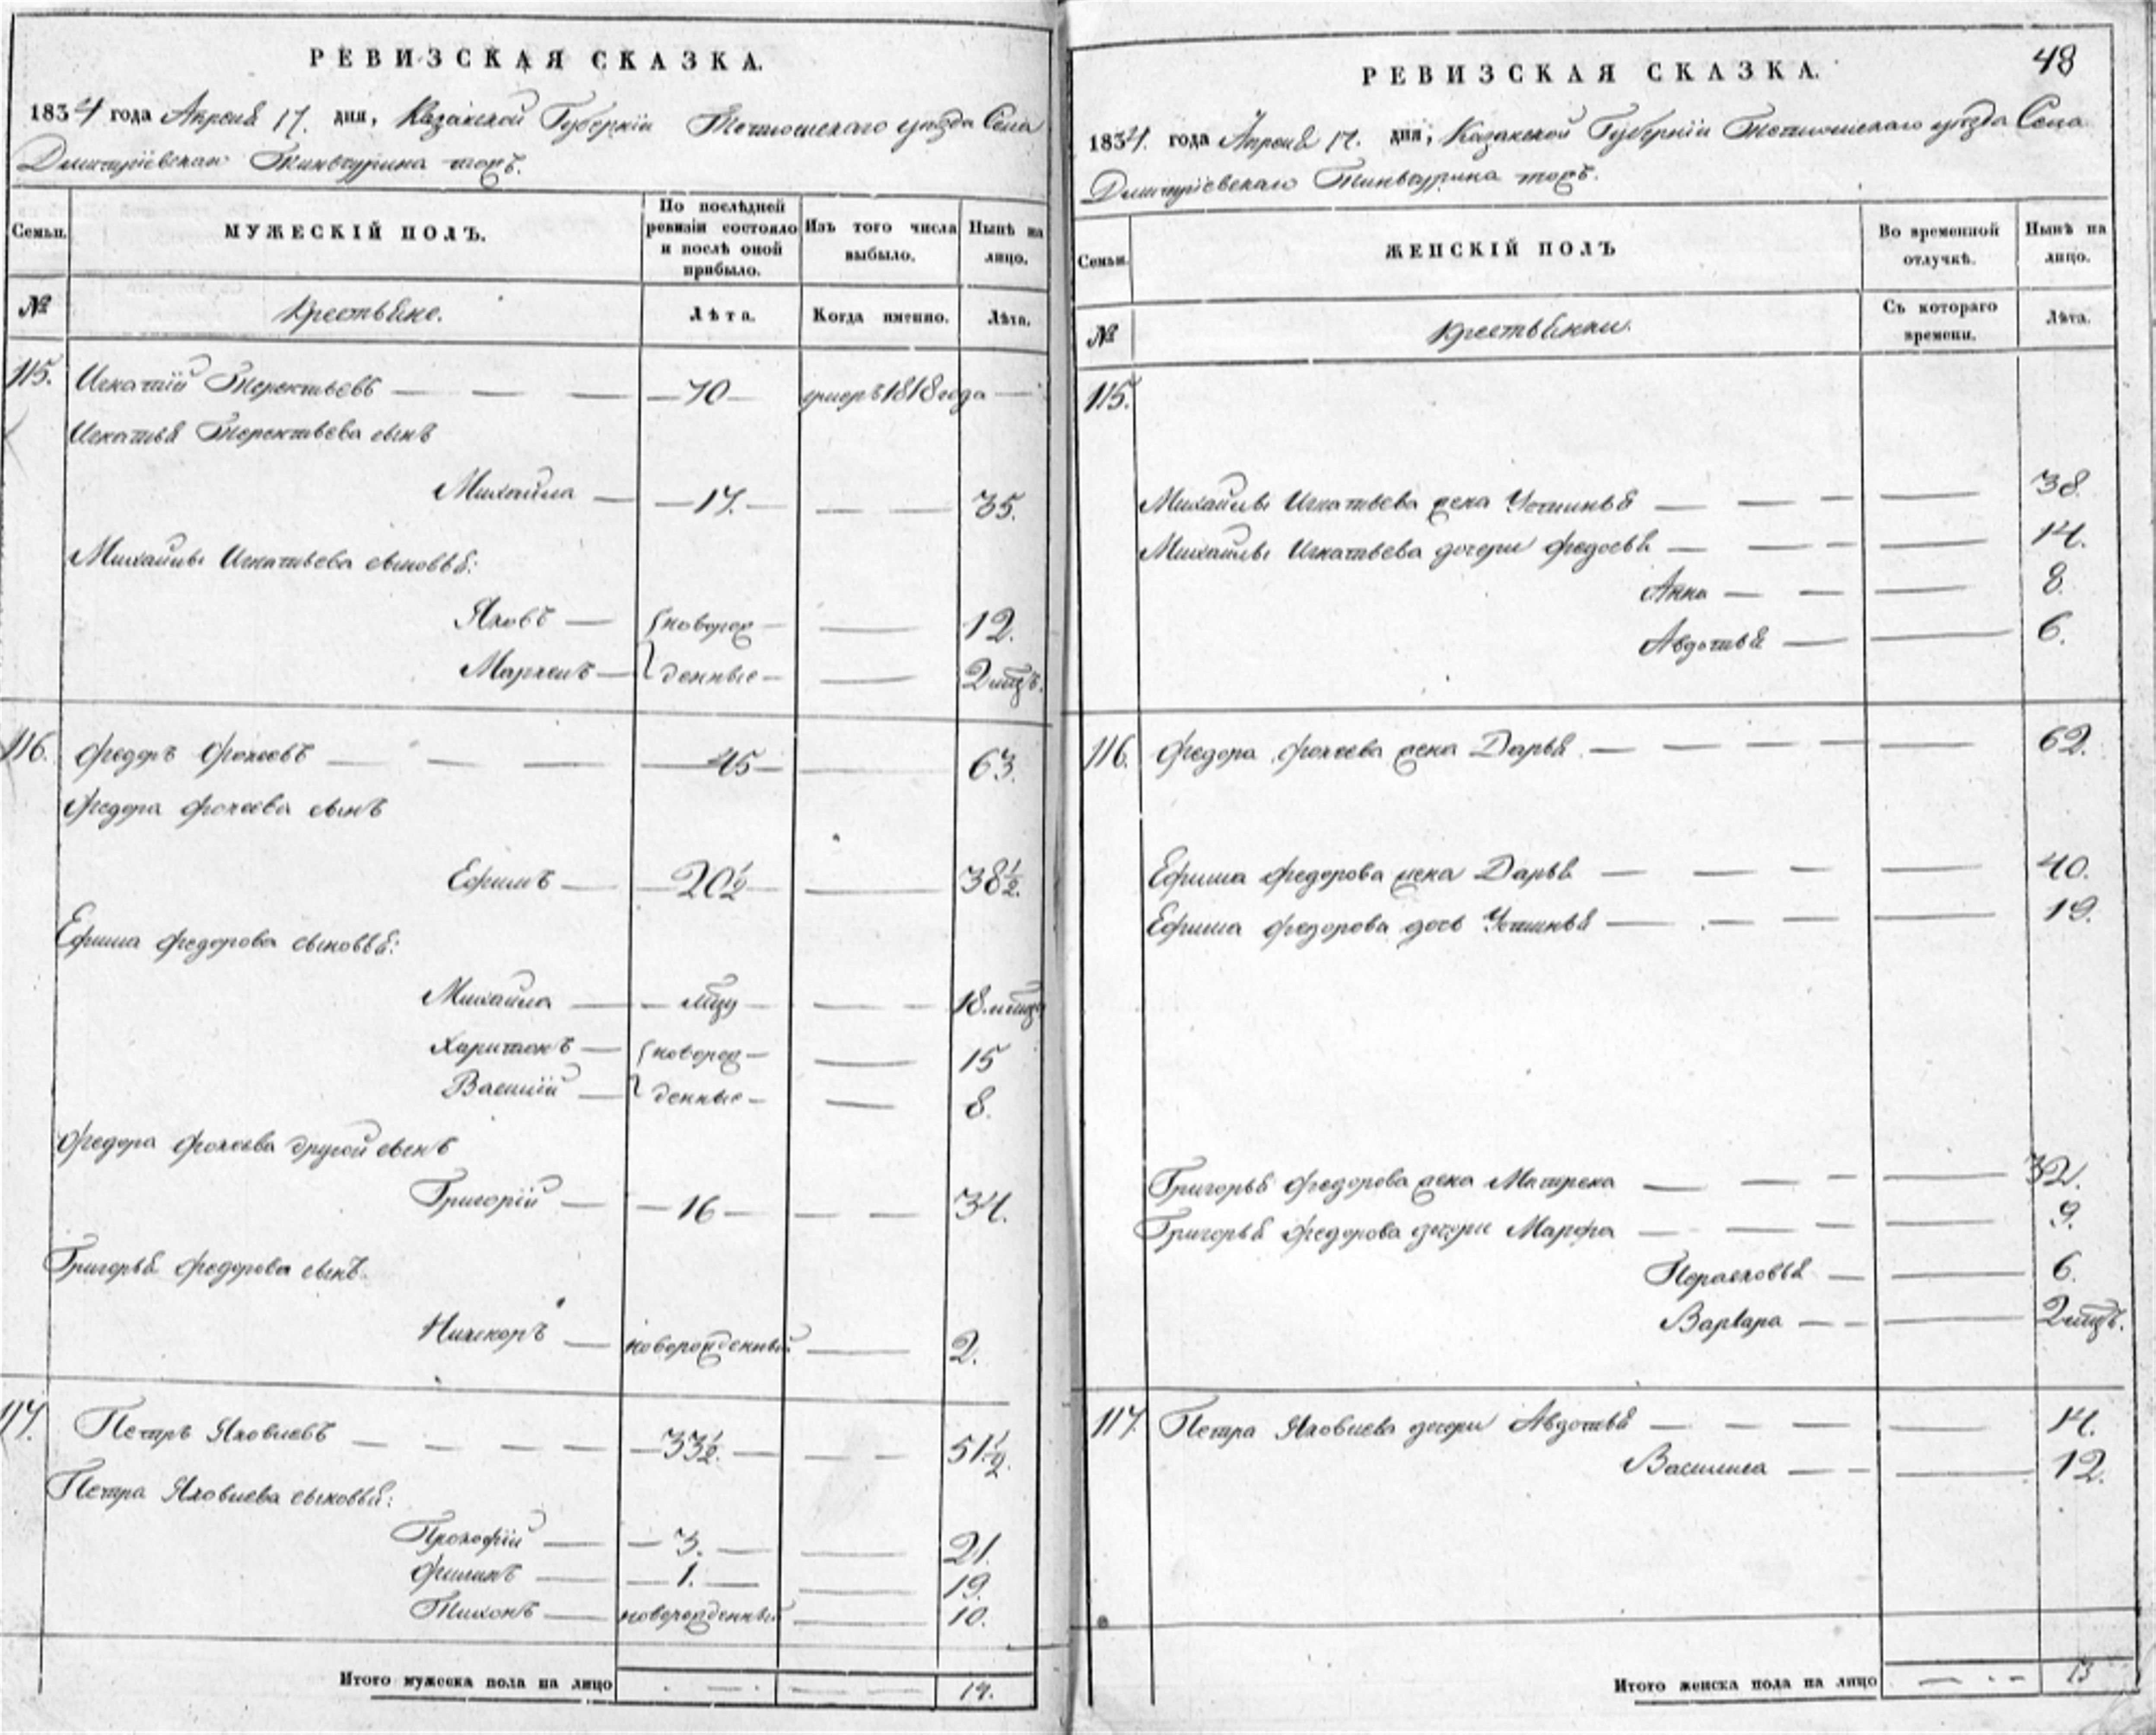 РЕВИЗСКАЯ СКАЗКА.
1834 года Апреля 17. дня, Казанской Губернiи Тетюшскаго уѣзда Села
Дмитрiевскаго тожъ.
Семьи.
МУЖЕСКIЙ ПОЛЪ.
По послѣдней ревизiи состояло и послѣ оной прибыло.
Изъ того числа выбыло.
Нынѣ на лицо.
№
Крестьяне.
Лѣта.
Когда именно.
Лѣта.
115. Игнатiй Терентьевъ — 70 — умеръ 1818 года —
Игнатья Терентьева сынъ
Михайла — 17. — 35.
Михайлы Игнатьева сыновья:
Яковъ — новорож — 12.
Маркелъ — денные — 2 мцъ.
116. Федоръ Фокеевъ — 45 — 63.
Федора Фокеева сынъ
Ефимъ — 20½ — 38½.
Ефима Федорова сыновья:
Михайла — мцу — 18.
Харитонъ — новорож — 15
Василiй — денные — 8.
Федора Фокеева другой сынъ
Григорiй — 16 — 34.
Григорья Федорова сынъ.
Никифоръ — новорожденный — 2.
117. Петръ Яковлевъ — 33½. — 51½.
Петра Яковлева сыновья:
Прокофiй — 3. — 21.
Филипъ — 1. — 19.
Тихонъ — новорожденный — 10.
Итого мужеска пола на лицо 14.
48
РЕВИЗСКАЯ СКАЗКА.
1834. года Апреля 17. дня, Казанской Губернiи Тетюшскаго уѣзда Села
Дмитрiевскаго тожъ.
Семьи.
ЖЕНСКIЙ ПОЛЪ
Во временной отлучкѣ.
Нынѣ на лицо.
№
Крестьянки.
Съ котораго времени.
Лѣта.
115.
Михайлы Игнатьева жена Устинья — 38.
Михайлы Игнатьева дочери Федосья — 14.
Анна — 8.
Авдотья — 6.
116. Федора Фокеева жена Дарья — 62.
Ефима Федорова жена Дарья — 40.
Ефима Федорова дочь Устинья — 19.
Григорья Федорова жена Матрена — 32.
Григорья Федорова дочери Марфа — 9.
Парасковья — 6.
Варвара — 2 мцъ.
117. Петра Яковлева дочери Авдотья — 14.
Василиса — 12.
Итого женска пола на лицо 13